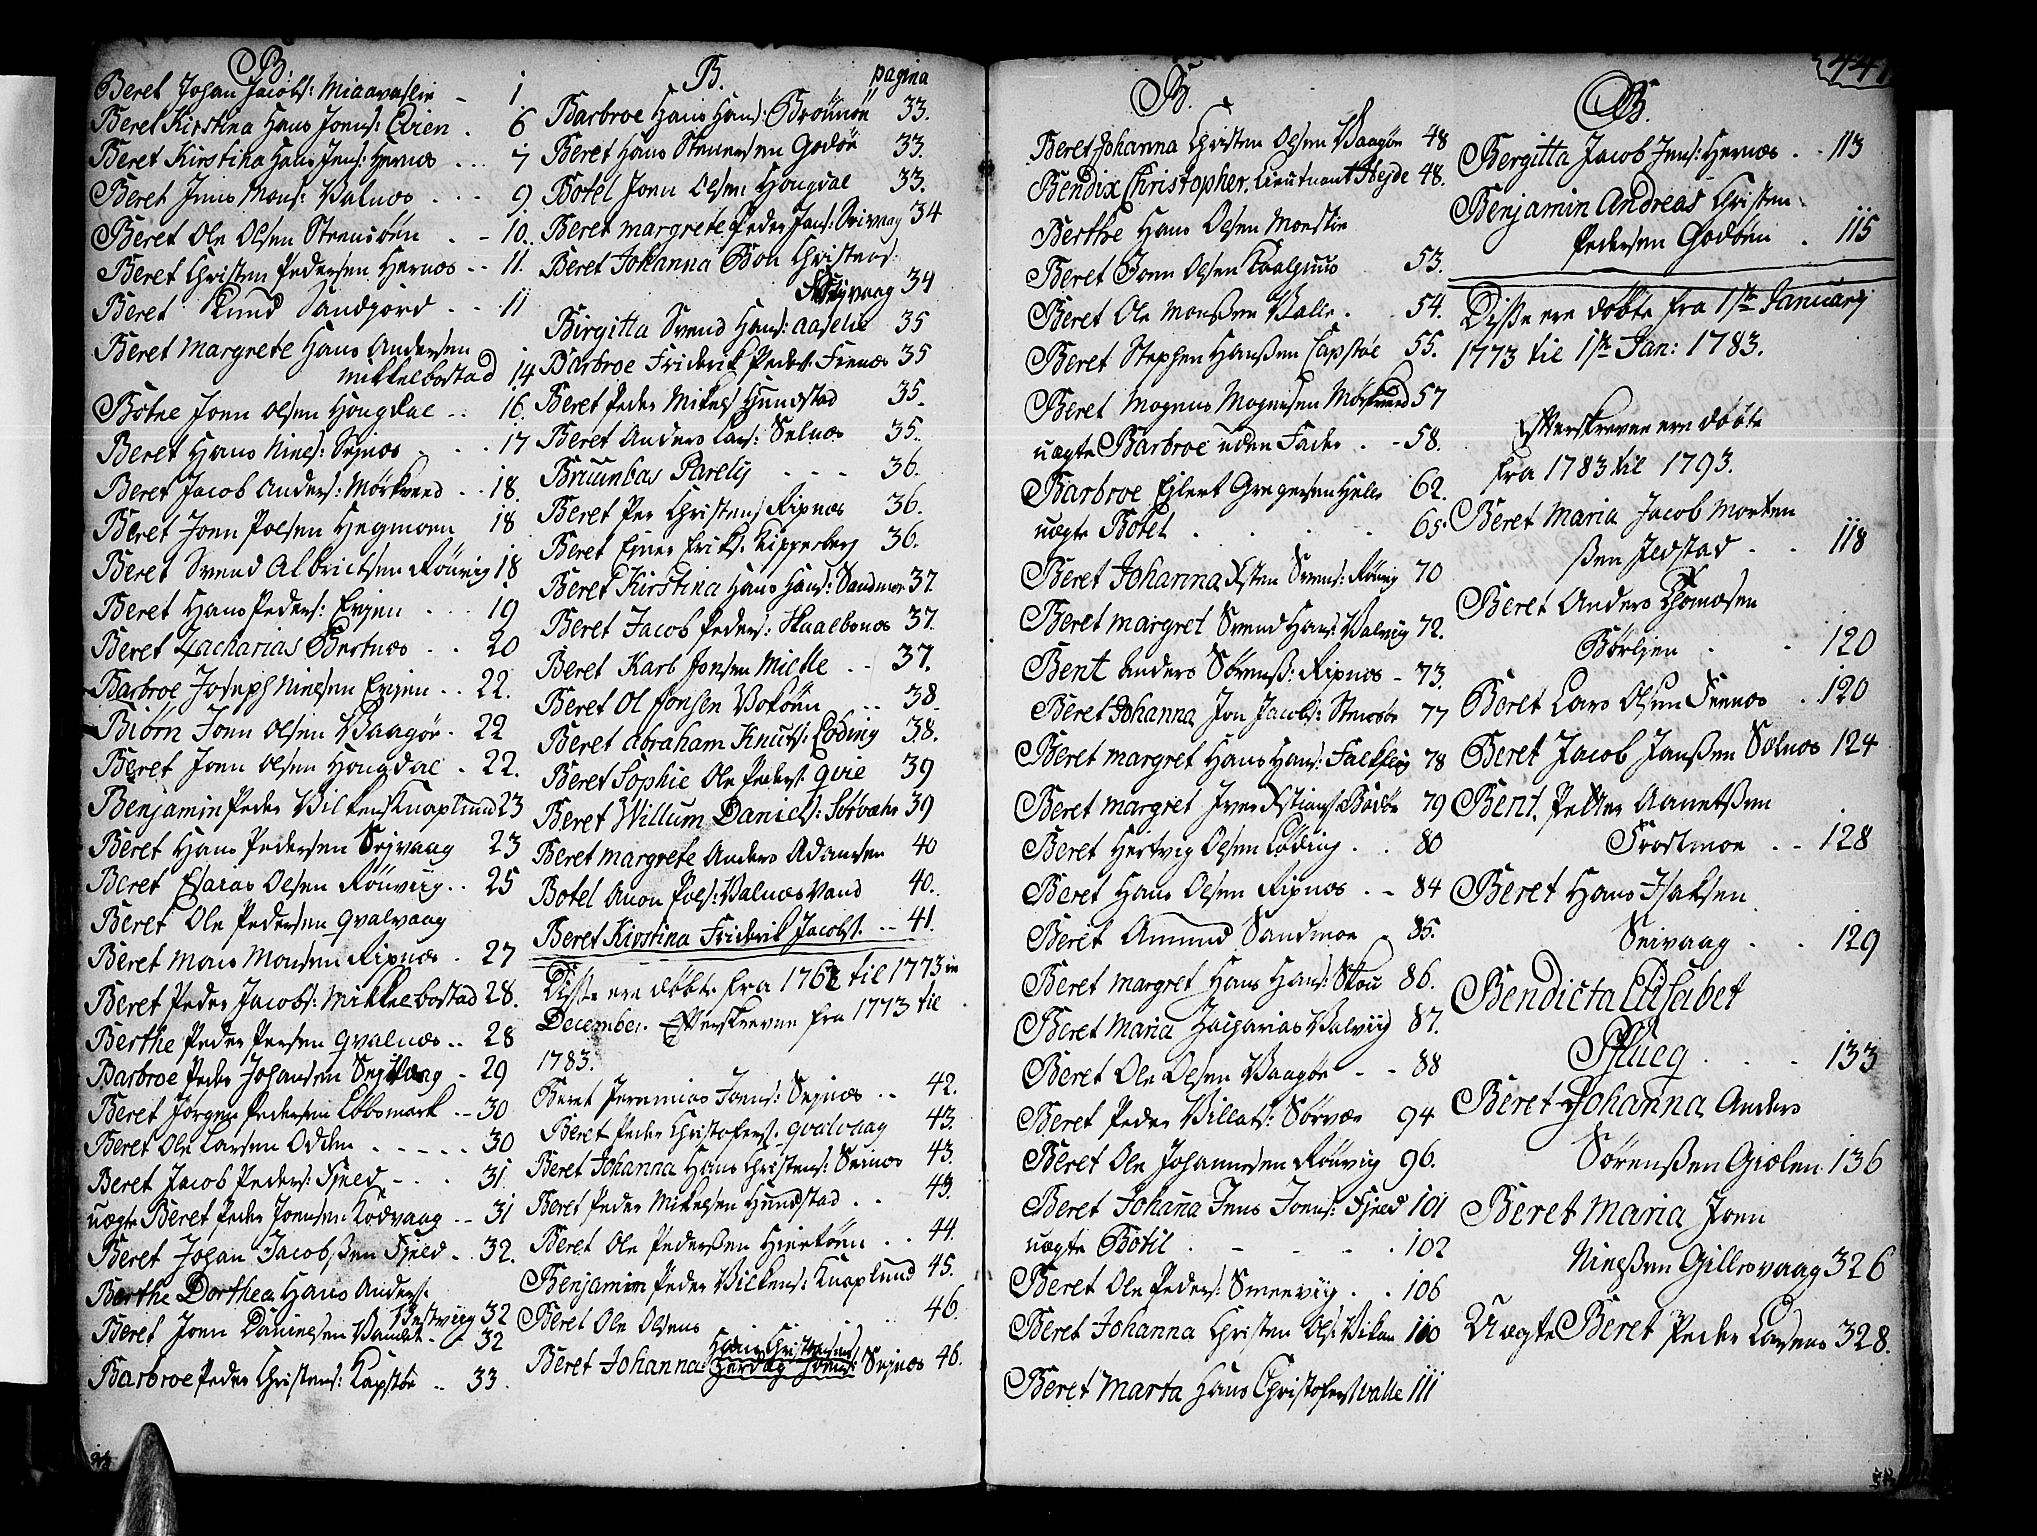 B.
Beret Johan Jacobs: Miaavaslie - 1
Beret Kirstina Hans Jons: Evien . 6
Beret Kirstina Hans Jens: Hernæs . . . 7
Beret Jens Mons: Valnæs . . . 9
Beret Ole Olsen Strensöen . - 10.
Beret Christen Pedersen Hernæs . . 11.
Beret Knud Sandjord . . 11
Beret Margrete Hans Andersen
Mikkelbostad 14
Botne Jonn Olsen Hongdal . . 16.
Beret Hans Niels: Sejnæs . . . 17
Beret Jacob Anders: Mörkved . . 18.
Beret Jonn Polsen Hegmoen 18
Beret Svend Albrictsen Röuvig 18
Beret Hans Peders: Evjen . . . 19
Beret Zacharias Bertnæs . . 20
Barbroe Joseph Nielsen Evjen . . 22.
Biörn Jonn Olsen Vaagöe . 22
Beret Jonn Olsen Hongdal . 22.
Benjamin Peder Vilkens Knaplund 23
Beret Hans Pedersen Sejvaag 23
Beret Esaias Olsen Röuviig . . 25
Beret Ole Pedersen Qvalvaag
Beret Mons Monsen Ripnæs . 27
Beret Peder Jacobs: Mikkelbostad 28.
Berthe Peder Persen Qvalnæs . . 28
Barbroe Peder Johansen Sejvaag - 29
Beret Jörgen Pedersen Löbsmark . . 30
Beret Ole Larsen Odden . . . . . 30
Beret Jacob Peders: Fjeld - . . 31.
uægte Beret Peder Jonnsen Kodvaag . . 31
Beret Johan Jacobsen Fjeld . . 32.
Berthe Dorthea Hans Anders:
Bestviig 32
Beret Jonn Danielsen Vandet . - 32
Barbroe Peder Christens: Kapstöe . . 33.
B. pagina
Barbroe Hans Hans: Brönnöe 33.
Beret Hans Stenersen Godöe 33.
Botel Jonn Olsen Hongdal 33.
Beret Margrete Peder Jans: Seivaag 34
Beret Johanna Bon Christens:
Sejvaag 34
Birgitta Svend Hans: Aaselie 35
Barbroe Friderik Peders: Fienæs 35
Beret Peder Mikels: Hundstad 35.
Beret Anders Lars: Sælnæs 35.
Bruunbas Parelij - - - 36.
Beret Per Christens: Ripnæs 36.
Beret Ejner Eriks: Kipperberg 36.
Beret Kirstina Hans Hans: Sandmoe 37
Beret Jacob Peders: Skaalbonæs 37.
Beret Karb Jonsen Mickle . . 37.
Beret Ol Jonsen Voköen . . 38.
Beret Abraham Knuts: Löding 38.
Beret Sophie Ole Peders: Qvie 39
Beret Willum Daniels: Sörvahr 39
Beret Margrete Anders Adamsen 40
Botel Anon Pols: Valnæsvand 40.
Beret Kirstina Friderik Jacobs: . . 41.
Disse ere döbte fra 1762 til 1773 in
December. Efterskrevne fra 1773 til
1783.
Beret Jeremias Jonns: Sejnæs . . 42.
Beret Peder Christofers: Qvalvaag 43.
Beret Johanna Hans Christens: Seinæs 43.
Beret Peder Mikelsen Hundstad . . 43.
Beret Ole Pedersen Hiertöen . . 44.
Benjamin Peder Vilkens: Knaplund 45.
Beret Ole Olsens . . . 46.
Hans Christensen
Beret Johanna: Sejnæs 46.
B.
Beret Johanna Christen Olsen Vaagöe 48
Bendix Christopher, Lieutnant Hejde 48.
Berthe Hans Olsen Moeslie
Beret Jonn Olsen Kaalhuus 53.
Beret Ole Monsen Valle . . 54.
Beret Stephen Hansen Capstöe 55.
Beret Mogens Mogensen Mörkved 57
uægte Barbroe uden Fader . - 58.
Barbroe Ejlert Gregersen Hjelle 62.
uægte Botel . . . . 65.
Beret Johanna Esten Svens: Röuvig 70
Beret Margret Svend Hans: Valviig 72.
Bent Anders Sörens: Ripnæs - 73.
Beret Johanna Jon Jacobs: Strensöe 77
Beret Margret Hans Hans: Falkflög 78
Beret Margret Iver Estians: Bodöe 79
Beret Hertvig Olsen Löding . . 80
Beret Hans Olsen Ripnæs . - 84
Beret Amund Sandmoe . 85.
Beret Margret Hans Hans: Skou 86.
Beret Maria Zacharias Valviig 87.
Beret Ole Olsen Vaagöe - - 88
Beret Peder Villats: Sörvær 94
Beret Ole Johannesen Röuvig 96.
Beret Johana Jens Jons: Fjeld 101
uægte Botil . - . . . 102
Beret Ole Peders: Smeeviig . . 106
Beret Johanna Christen Ols: Vikan 110
Beret Marta Hans Christofers: Valle 111
441
B.
Bergitta Jacob Jens: Hernæs . . 113
Benjamin Andreas Christen
Pedersen Godöen . 115
Disse ere döbte fra 1ste Januarij
1773 til 1ste Jan: 1783.
Efterskrevne ere döbte
fra 1783 til 1793.
Beret Maria Jacob Morten
sen Jedstad . . 118
Beret Anders Thomasen
Börtjen . . 120
Beret Lars Olsen Fenæs . 120
Beret Jacob Jansen Sælnæs 124
Bent, Petter Aanetsen
Trostmoe . . 128
Beret Hans Isaksen
Seivaag . . 129
Bendicta Elisabet
Pflueg . . . 133
Beret Johanna Anders
Sörensen Giælen 136
Beret Maria Jonn
Nielsen Gillesvaag 326
Uægte Beret Peder Larsens 328.